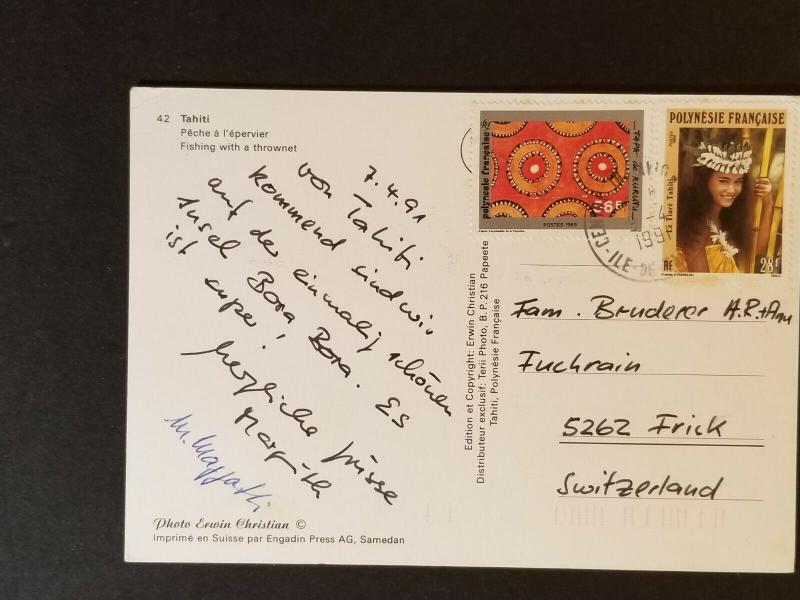 42 Tahiti
Pêche à l'épervier
Fishing with a thrownet
7.4.91
von Tahiti
kommend sind wir
auf der einmalig schönen
Insel Bora Bora. Es
ist super!
herzliche Grüsse
Margrith
M.
Photo Erwin Christian ©
Imprimé en Suisse par Engadin Press AG, Samedan
Edition et Copyright: Erwin Christian
Distributeur exclusif: Terii Photo, B.P. 216 Papeete
Tahiti, Polynésie Française
polynésie française
TAPA de RURUTU
36F
POSTES 1985
POLYNÉSIE FRANÇAISE
Le Tiare Tahiti
RF
28F
1991
ILE-DE
Fam. Bruderer H.R.+
Fuchrain
5262 Frick
Switzerland